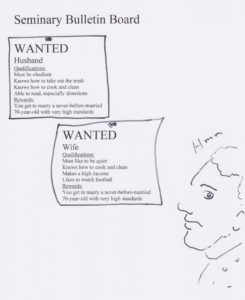 Seminary Bulletin Board
WANTED
Husband
Qualifications:
Must be obedient
Knows how to take out the trash
Knows how to cook and clean
Able to read, especially directions
Rewards:
You get to marry a never-before-married
70-year-old with very high standards
WANTED
Wife
Qualifications:
Must like to be quiet
Knows how to cook and clean
Makes a high income
Likes to watch football
Rewards:
You get to marry a never-before-married
70-year-old with very high standards
Hmm